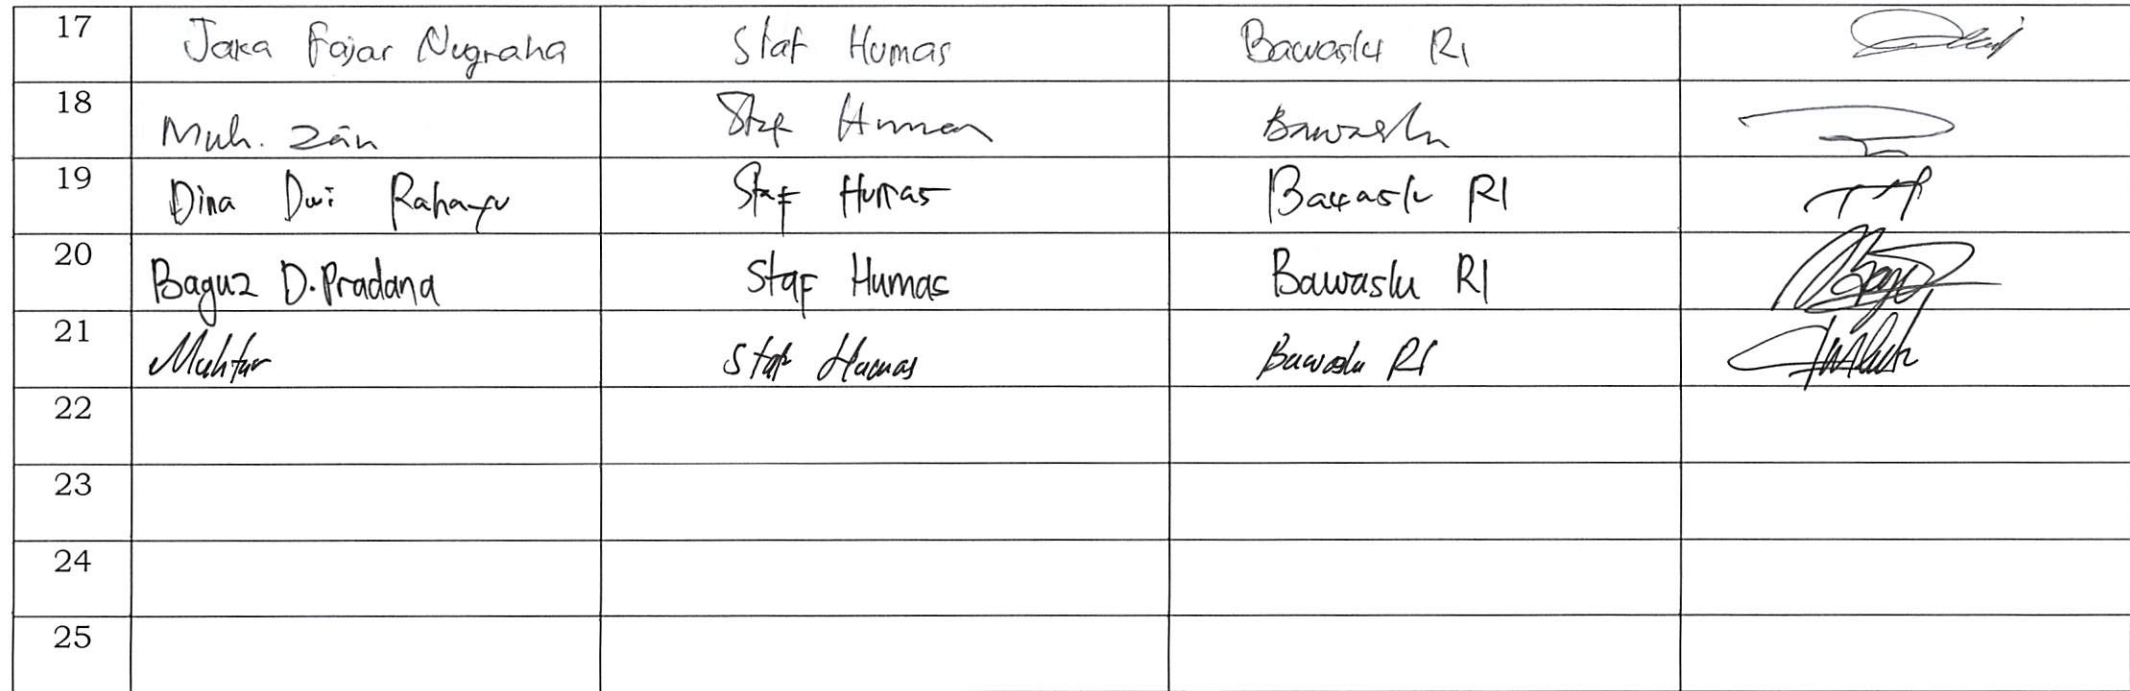 17 Jaka Fajar Nugraha Staf Humas Bawaslu RI
18 Muh. Zain Staf Humas Bawaslu
19 Dina Dwi Rahayu Staf Humas Bawaslu RI
20 Baguz D. Pradana Staf Humas Bawaslu RI
21 Muhtar Staf Humas Bawaslu RI
22
23
24
25